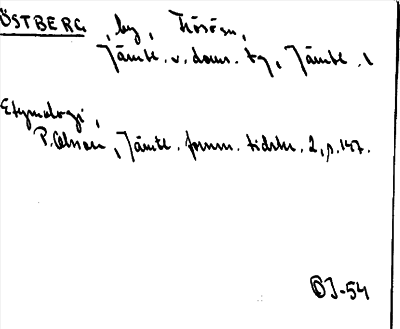 ÖSTBERG, by, Frösön,
Jämtl. v. doms. tg, Jämtl. l
Etymologi,
P. Olsson, Jämtl. fornm. tidskr. 2, p. 147.
OJ-54